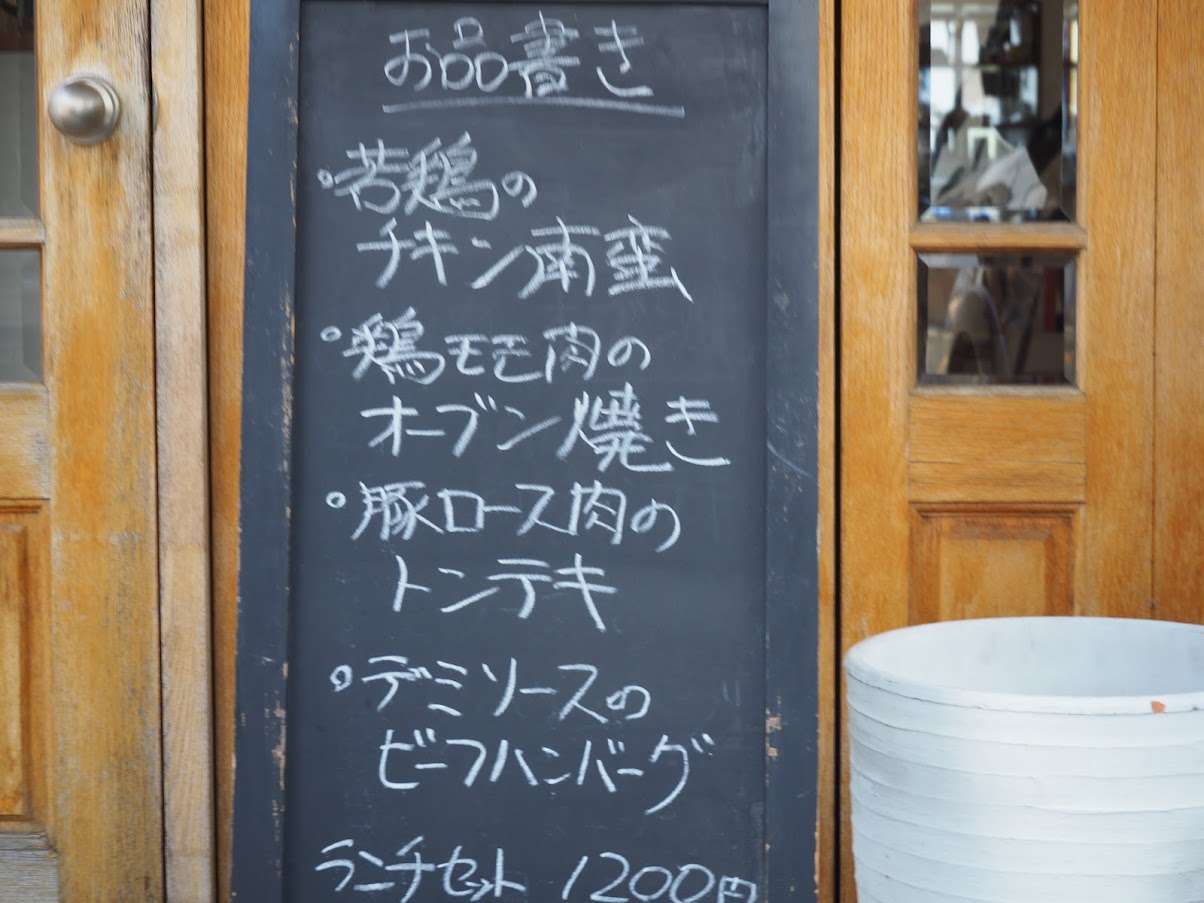 お品書き
。若鶏の
チキン南蛮
。鶏モモ肉の
オーブン焼き
。豚ロース肉の
トンテキ
。デミソースの
ビーフハンバーグ
ランチセット 1200円